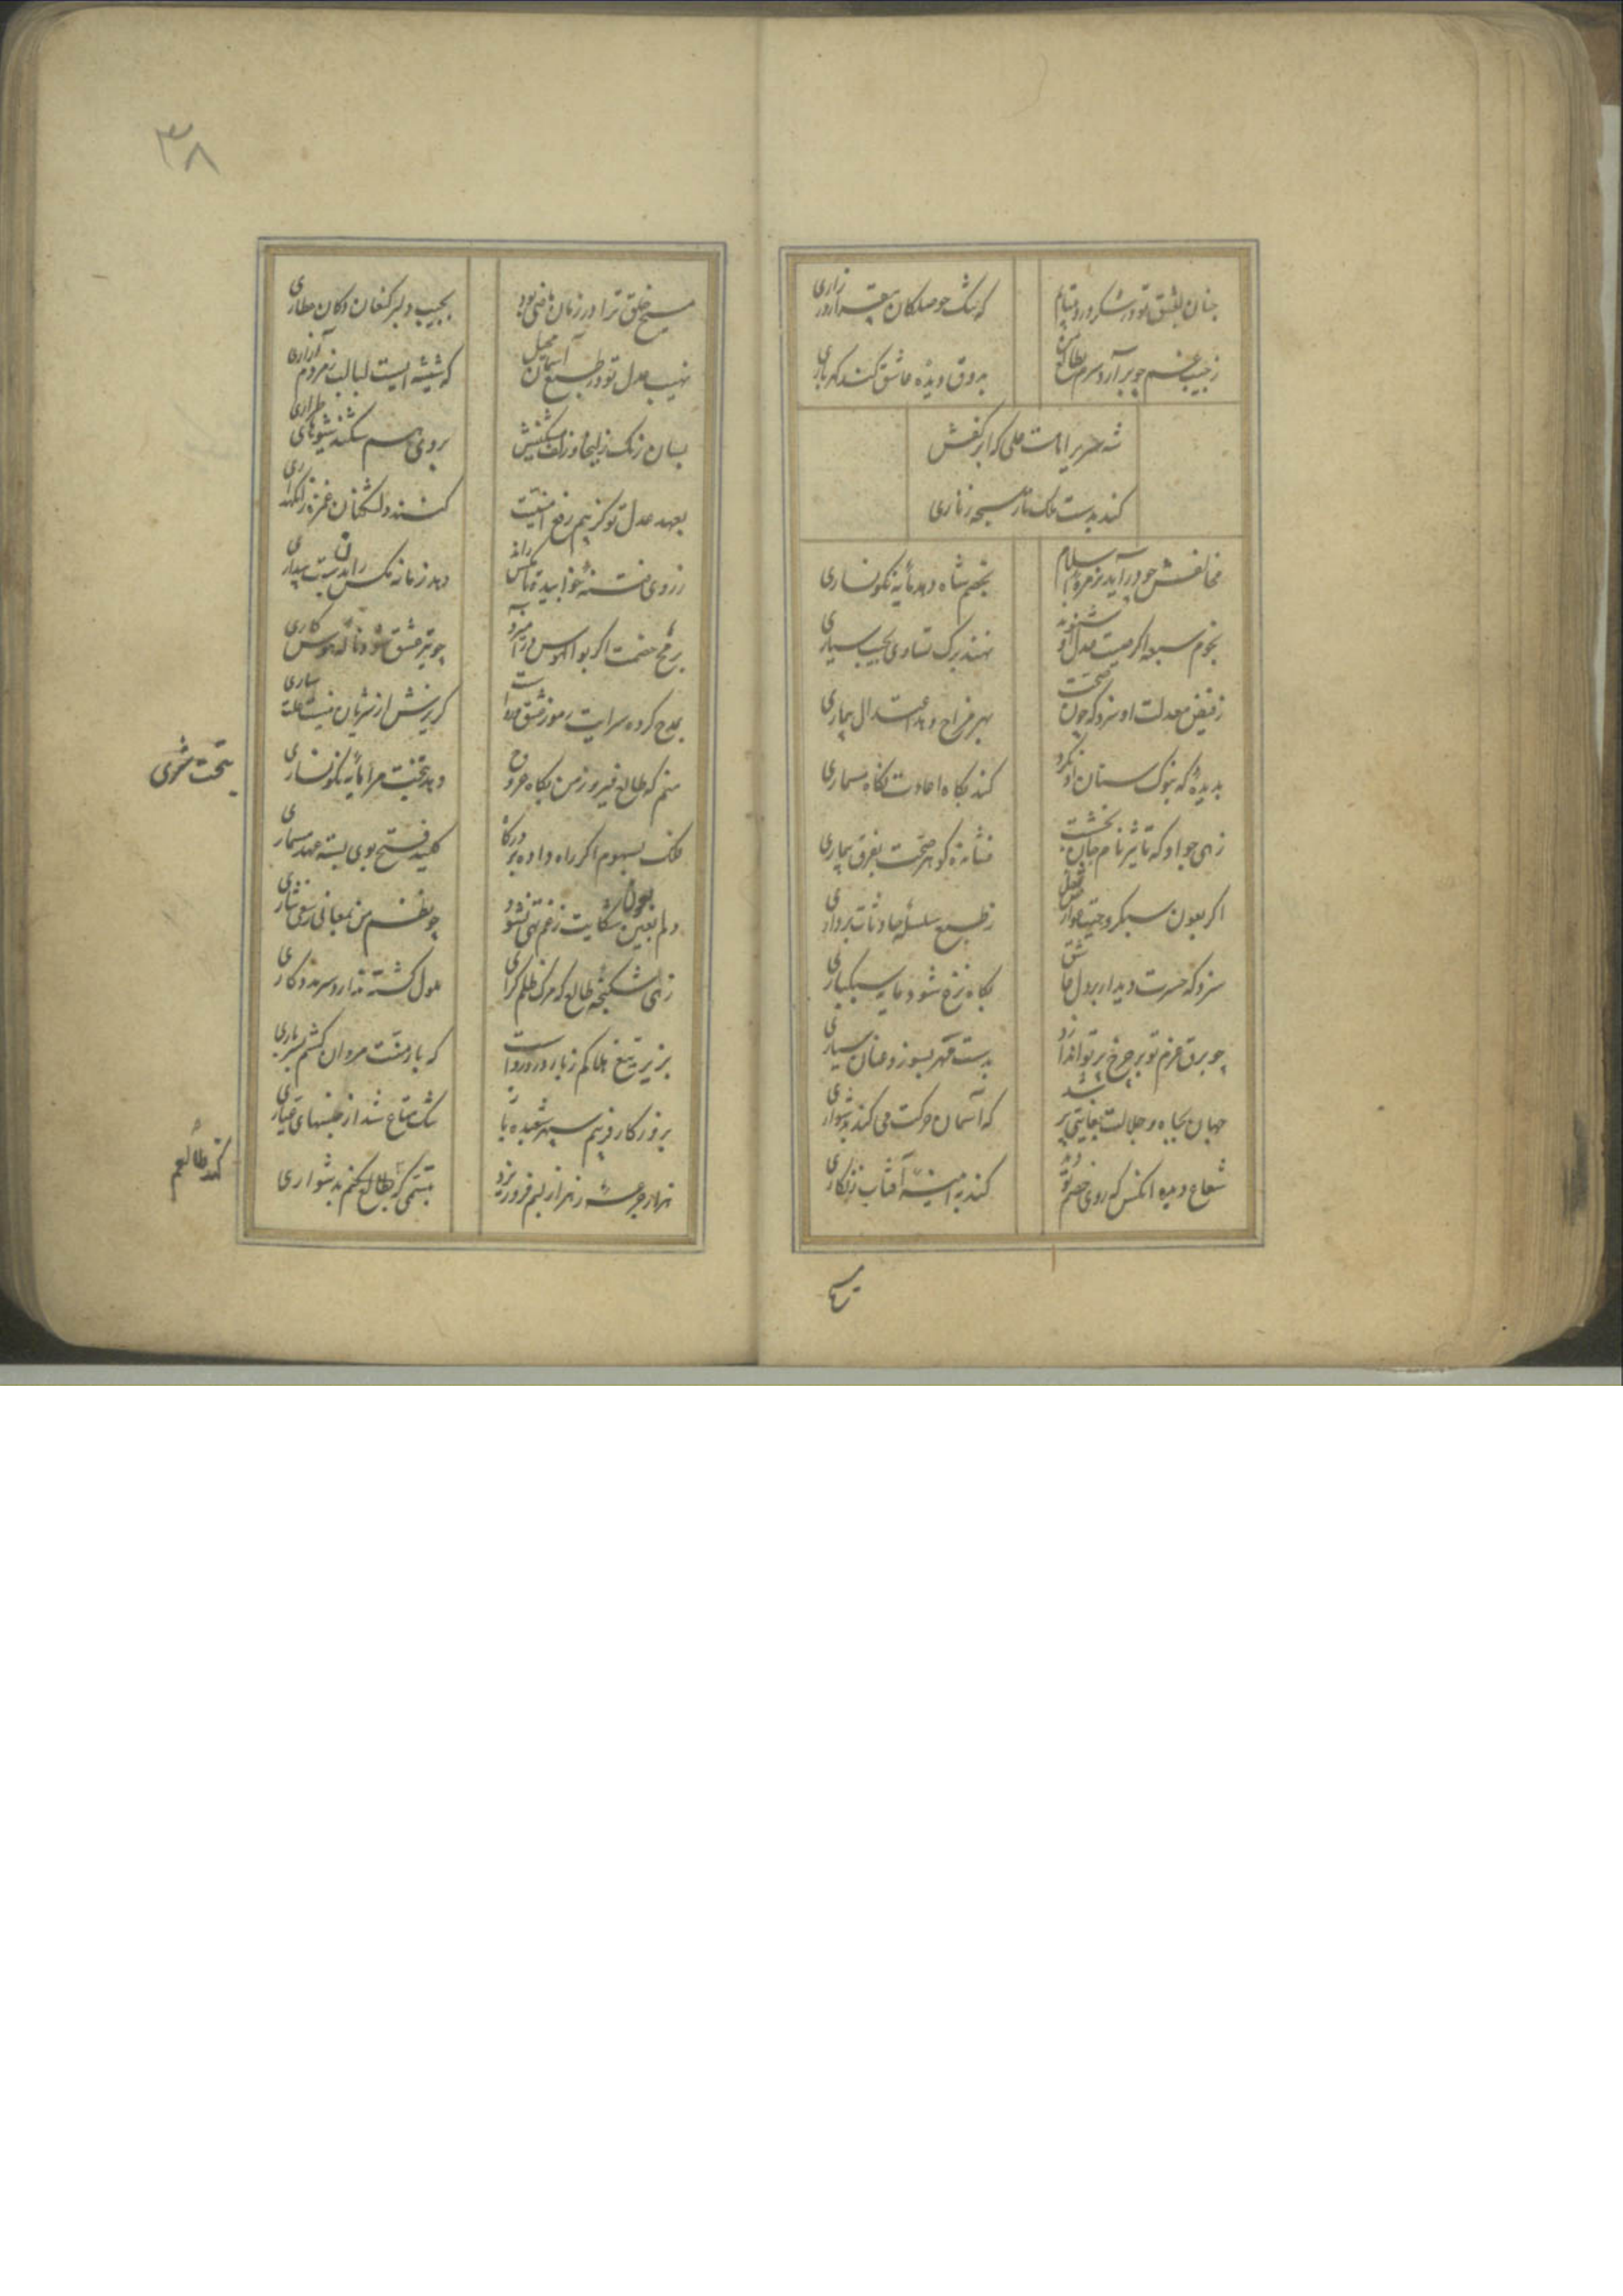 چنان بعشق تو در شکر درد بیتابم
که شک حوصلکان بیقرار در زاری
ز جیب غم چو بر آرد سرم
بذوق دیده عاشق کند کهرباری
شه سریر امامت علی که از کفش
کند بدست ملک تار سبحه زناری
مخالفش چو در آید بزمره اسلام
بخصم شاه دهد مایه نکونساری
نجوم سبعه اگر صیت عدل او شنوند
نهند ترک تساوی بجیب سیاری
ز فیض معدلت او سزد که چون صحت
بهر مزاج دهد اعتدال بیماری
بدیده که بنوک سنان او نکرد
کند نکاه اعادت نکاه مسماری
زهی جواد که تاثیر نام جان بخشت
فشانده کوهر صحت بفرق بیماری
اگر بعون سبکروحیت
ز طبع سلسله حادثات برداری
سزد که حسرت دیدار بر دل عاشق
بگاه نزع شود مایه سبکباری
چو برق عزم تو بر چرخ پرتو اندازد
بدست قهر بسوزد عنان سیاری
جهان بجاه و جلالت بغایتی پر شد
که آسمان حرکت می کند بدشواری
شعاع دیده انکس که روی خصم تو دید
کند به آینه آفتاب زنگاری
مسیح
۳۸
مسیح خلق ترا در زمان ماضی بود
بجیب دلبر کنعان دکان عطاری
نهیب عدل تو در طبع آسمان
که شیشه ایست لبالب ز مردم آزاری
بسان رنگ زلیخا و زلف مشکینش
بروی هم شکند شیوهای طراری
بعهد عدل تو کز بیم رفع امنیت
کشند دلشدگان غمزه را نکهداری
ز روی فتنه خوابیده تا مکس راند
دهد زمانه مکس ران بدست بیداری
برمح خصمت اگر بوالهوس در آمیزد
چو تیر عشق شود ناله هوس کاری
بمدح کرده سرایت رموز عشق مرا
کریزش از شریان نیست علت ساری
منم که طالع فیروز من بگاه عروج
دهد بتحت مرا مایه نکونساری
بتحت
فلک بسهوم اگر راه داده بر درگاه
کلید فتح بوی بسته عهد مسماری
دلم بعین شکایت ز غم تهی نشود
بعون
چو نظم من بمعانی
زهی شکنجه طالع که مرک ظلم گرای
ملول گشته ندارد سر مددکاری
بزیر تیغ هلاکم ز یار دور رواست
که بار منت مردن کشم بسرباری
بروزکار فریبم سپهر شعبده باز
تنک متاع شد از جنسهای عیاری
هزار جرعه زهر از لبم فرو ریزد
تبسمی که بطالع کنم بدشواری
کند طالعم